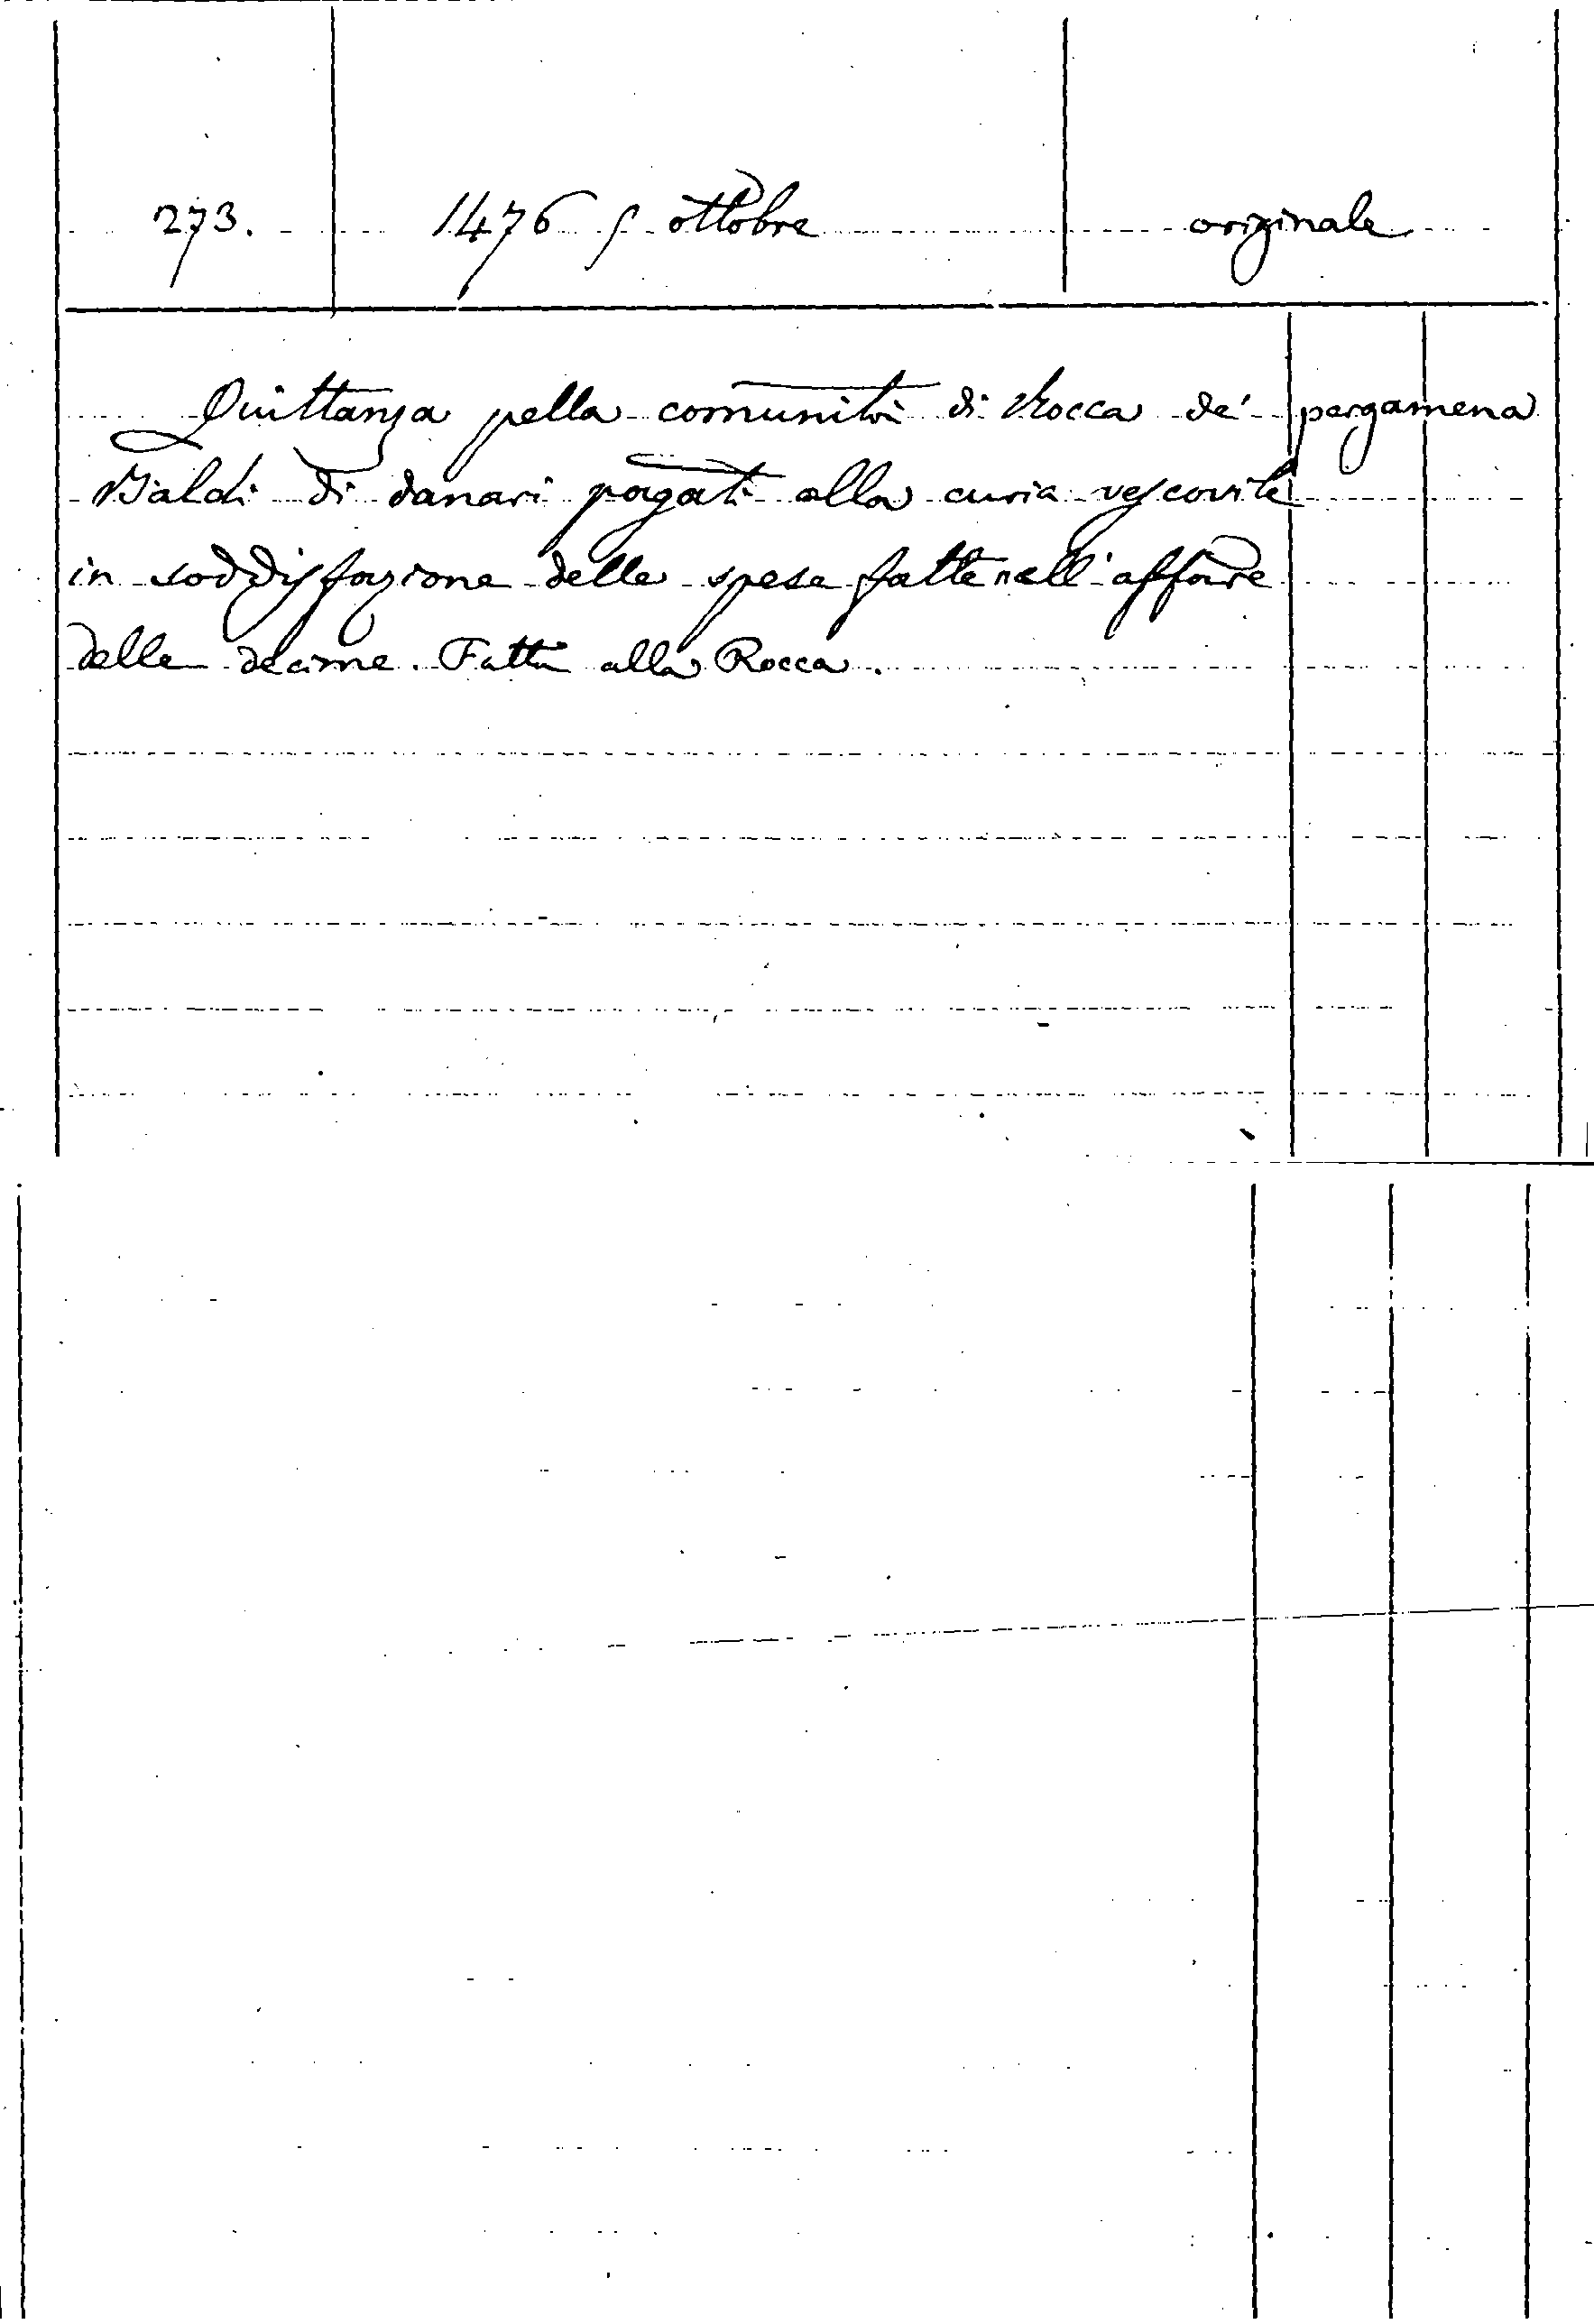 273. 1476 5 ottobre originale
Quittanza pella comunità di Rocca de' pergamena
Baldi di danari pagati alla curia vescovile
in soddisfazione delle spese fatte nell'affare
delle decime. Fatta alla Rocca.